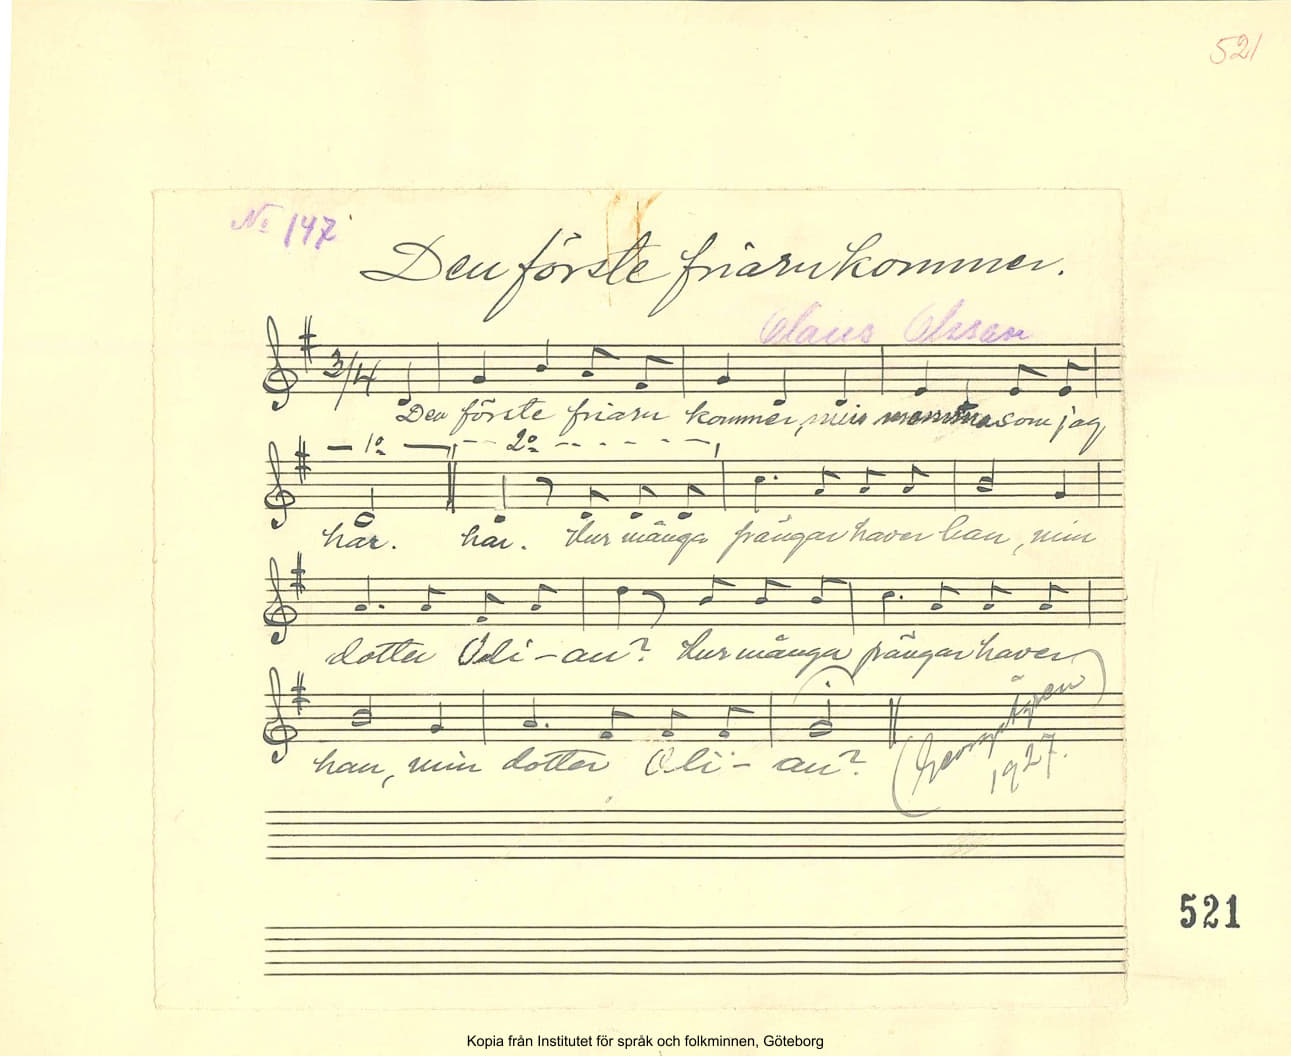 521
No 147
Den förste friarn kommer.
Claus Olssen
3/4
Den förste friarn kommer, min mamma som jag
1o 2o
har. har. Hur många prängar haver han, min
dotter Oli-an? Hur många prängar haver
han, min dotter Oli-an?
1927.
521
Kopia från Institutet för språk och folkminnen, Göteborg